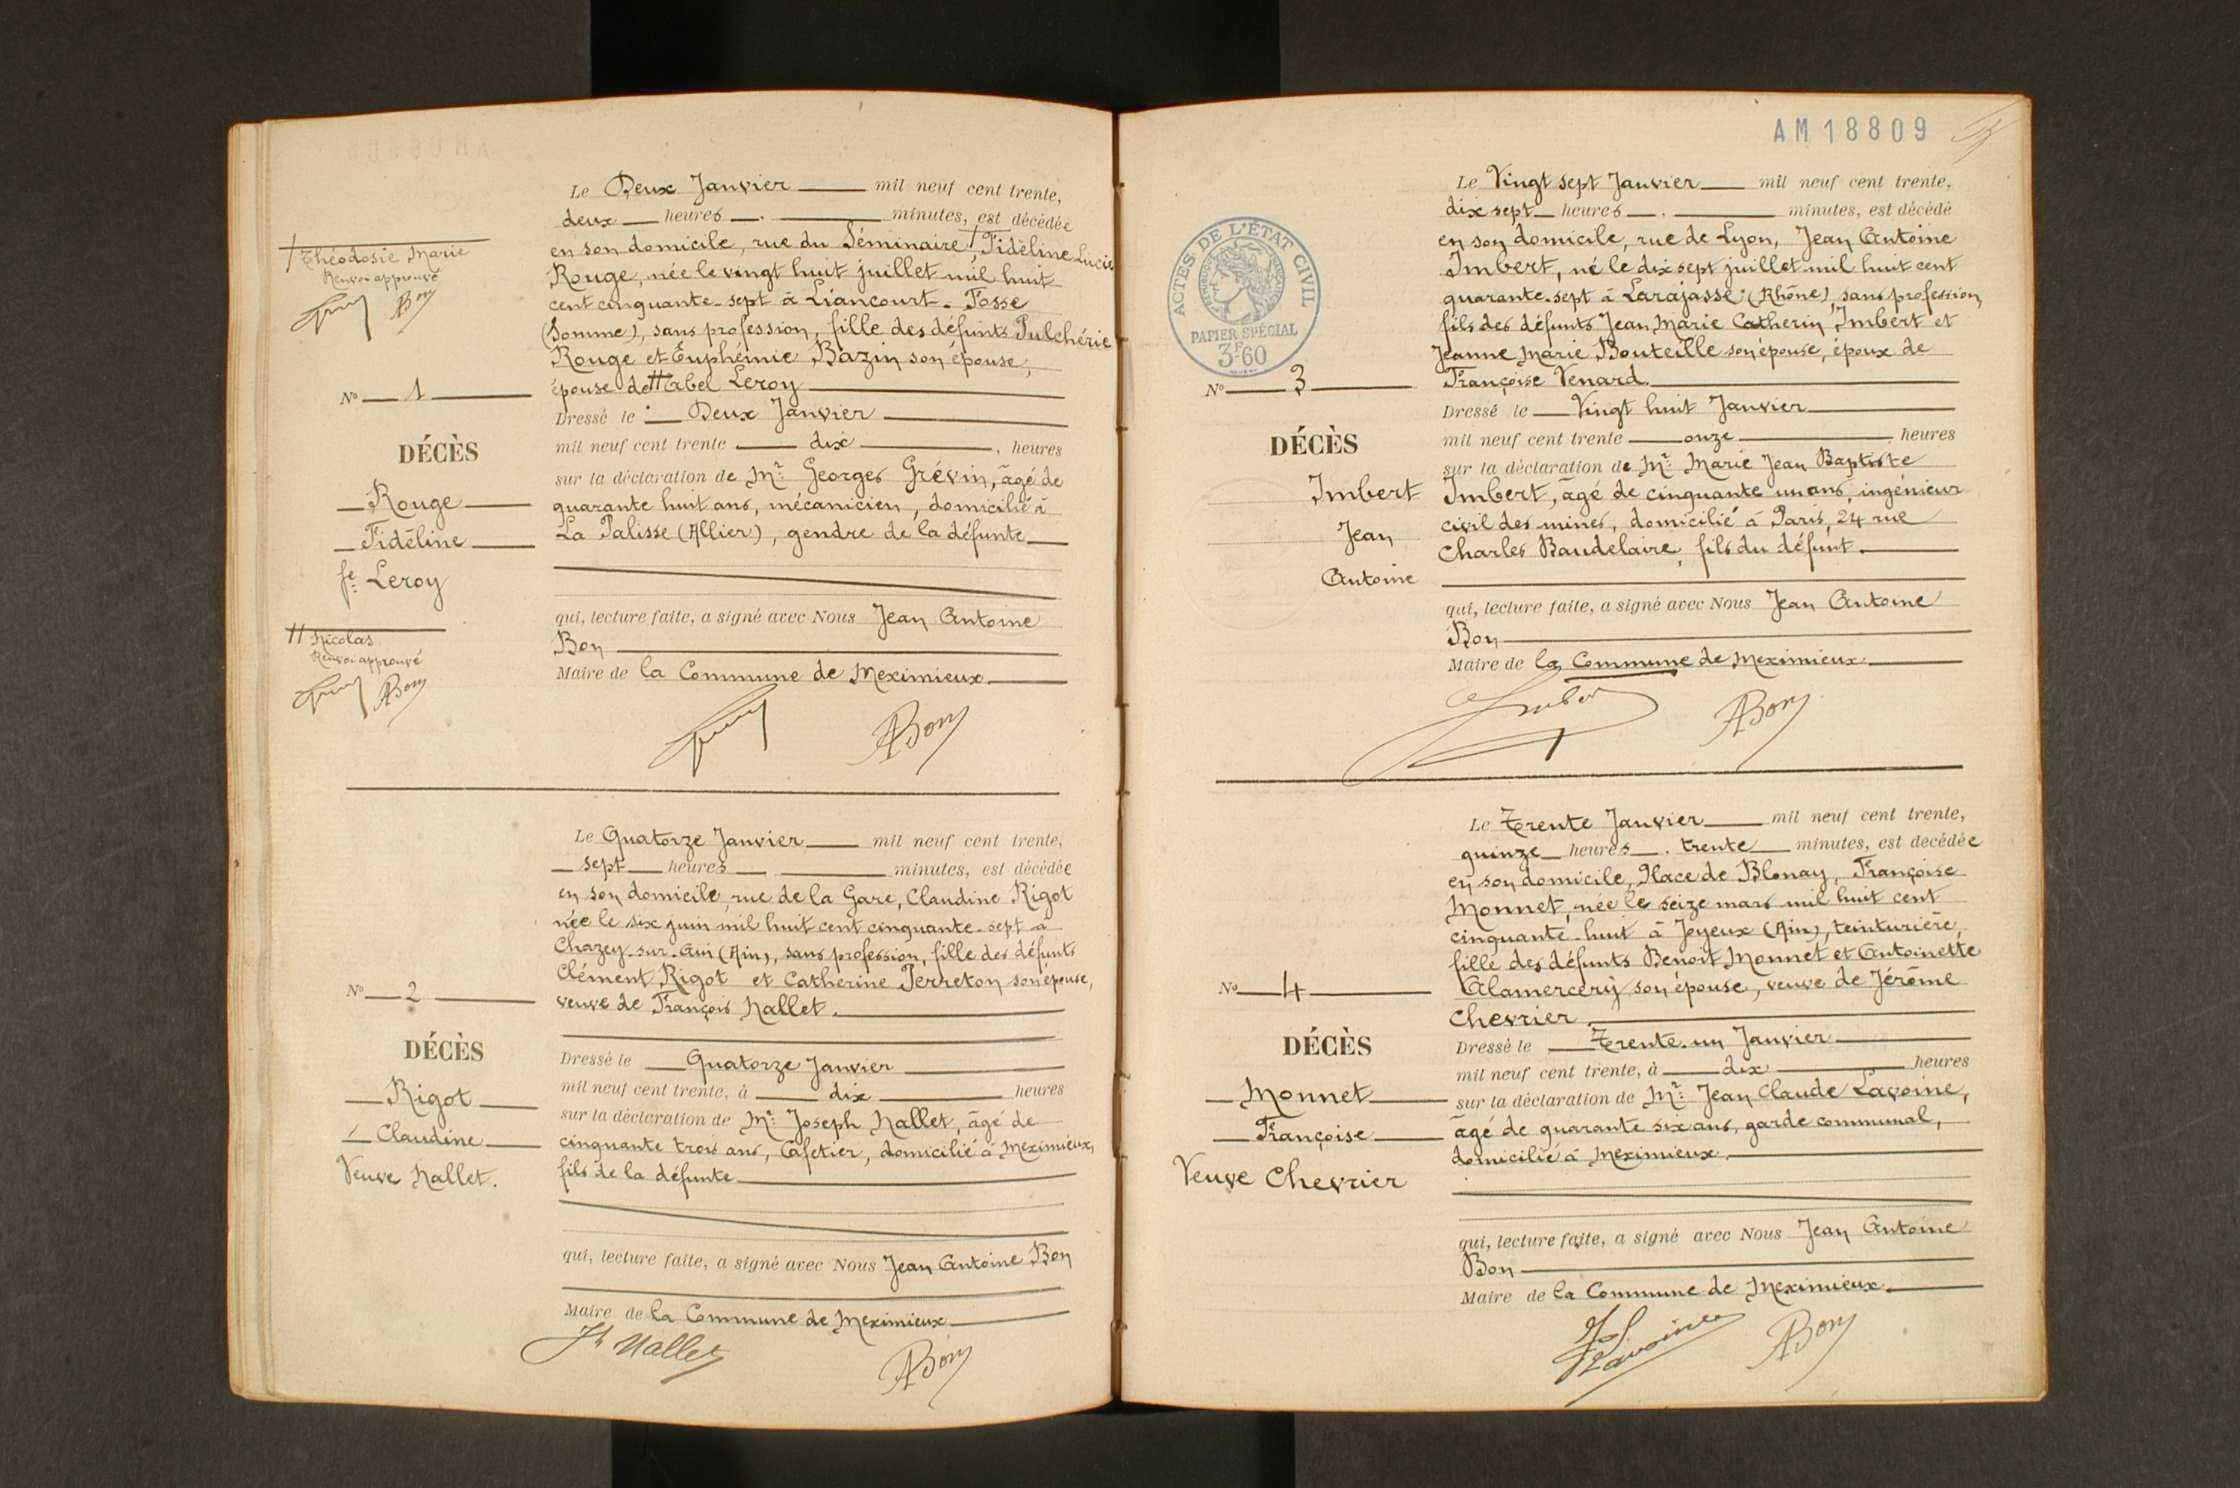 † Théodosie Marie
Renvoi approuvé
Bon
N° 1
DÉCÈS
Rouge
Fidéline
fe Leroy
†† Nicolas
Renvoi approuvé
ABon
Le Deux Janvier mil neuf cent trente,
deux heures . minutes, est décédée
en son domicile, rue du Séminaire †, Fidéline Lucie
Rouge, née le vingt huit juillet mil huit
cent cinquante-sept à Liancourt-Fosse
(Somme), sans profession, fille des défunts Pulchérie
Rouge et Euphémie Bazin son épouse,
épouse de †† Abel Leroy
Dressé le Deux Janvier
mil neuf cent trente dix, heures
sur la déclaration de Mr Georges Grévin, âgé de
quarante huit ans, mécanicien, domicilié à
La Palisse (Allier), gendre de la défunte
qui, lecture faite, a signé avec Nous Jean Antoine
Bon
Maire de la Commune de Meximieux
ABon
N° 2
DÉCÈS
Rigot
Claudine
Veuve Nallet.
Le Quatorze Janvier mil neuf cent trente,
sept heures minutes, est décédée
en son domicile, rue de la Gare, Claudine Rigot
née le six juin mil huit cent cinquante-sept à
Chazey-sur-Ain (Ain), sans profession, fille des défunts
Clément Rigot et Catherine Perreton son épouse,
veuve de François Nallet.
Dressé le Quatorze Janvier
mil neuf cent trente, à dix heures
sur la déclaration de Mr Joseph Nallet, âgé de
cinquante trois ans, Cafetier, domicilié à Meximieux,
fils de la défunte
qui, lecture faite, a signé avec Nous Jean Antoine Bon
Maire de la Commune de Meximieux
Jh Nallet
ABon
AM 18809
ACTES DE L'ÉTAT CIVIL
RÉPUBLIQUE FRANÇAISE
PAPIER SPÉCIAL
3F60
N° 3
DÉCÈS
Imbert
Jean
Antoine
Le Vingt sept Janvier mil neuf cent trente,
dix sept heures . minutes, est décédé
en son domicile, rue de Lyon, Jean Antoine
Imbert, né le dix sept juillet mil huit cent
quarante-sept à Larajasse (Rhône), sans profession,
fils des défunts Jean Marie Catherin Imbert et
Jeanne Marie Bouteille son épouse, époux de
Françoise Venard.
Dressé le Vingt huit Janvier
mil neuf cent trente onze heures
sur la déclaration de Mr Marie Jean Baptiste
Imbert, âgé de cinquante un ans, ingénieur
civil des mines, domicilié à Paris, 24 rue
Charles Baudelaire, fils du défunt
qui, lecture faite, a signé avec Nous Jean Antoine
Bon
Maire de la Commune de Meximieux
Imbert
ABon
N° 4
DÉCÈS
Monnet
Françoise
Veuve Chevrier
Le Trente Janvier mil neuf cent trente,
quinze heures . trente minutes, est décédée
en son domicile, Place de Blonay, Françoise
Monnet, née le seize mars mil huit cent
cinquante-huit à Joyeux (Ain), teinturière,
fille des défunts Benoit Monnet et Antoinette
Alamercery son épouse, veuve de Jérôme
Chevrier
Dressé le Trente-un Janvier
mil neuf cent trente, à dix heures
sur la déclaration de Mr Jean Claude Lavoine,
âgé de quarante six ans, garde communal,
domicilié à Meximieux.
qui, lecture faite, a signé avec Nous Jean Antoine
Bon
Maire de la Commune de Meximieux
Lavoine
ABon